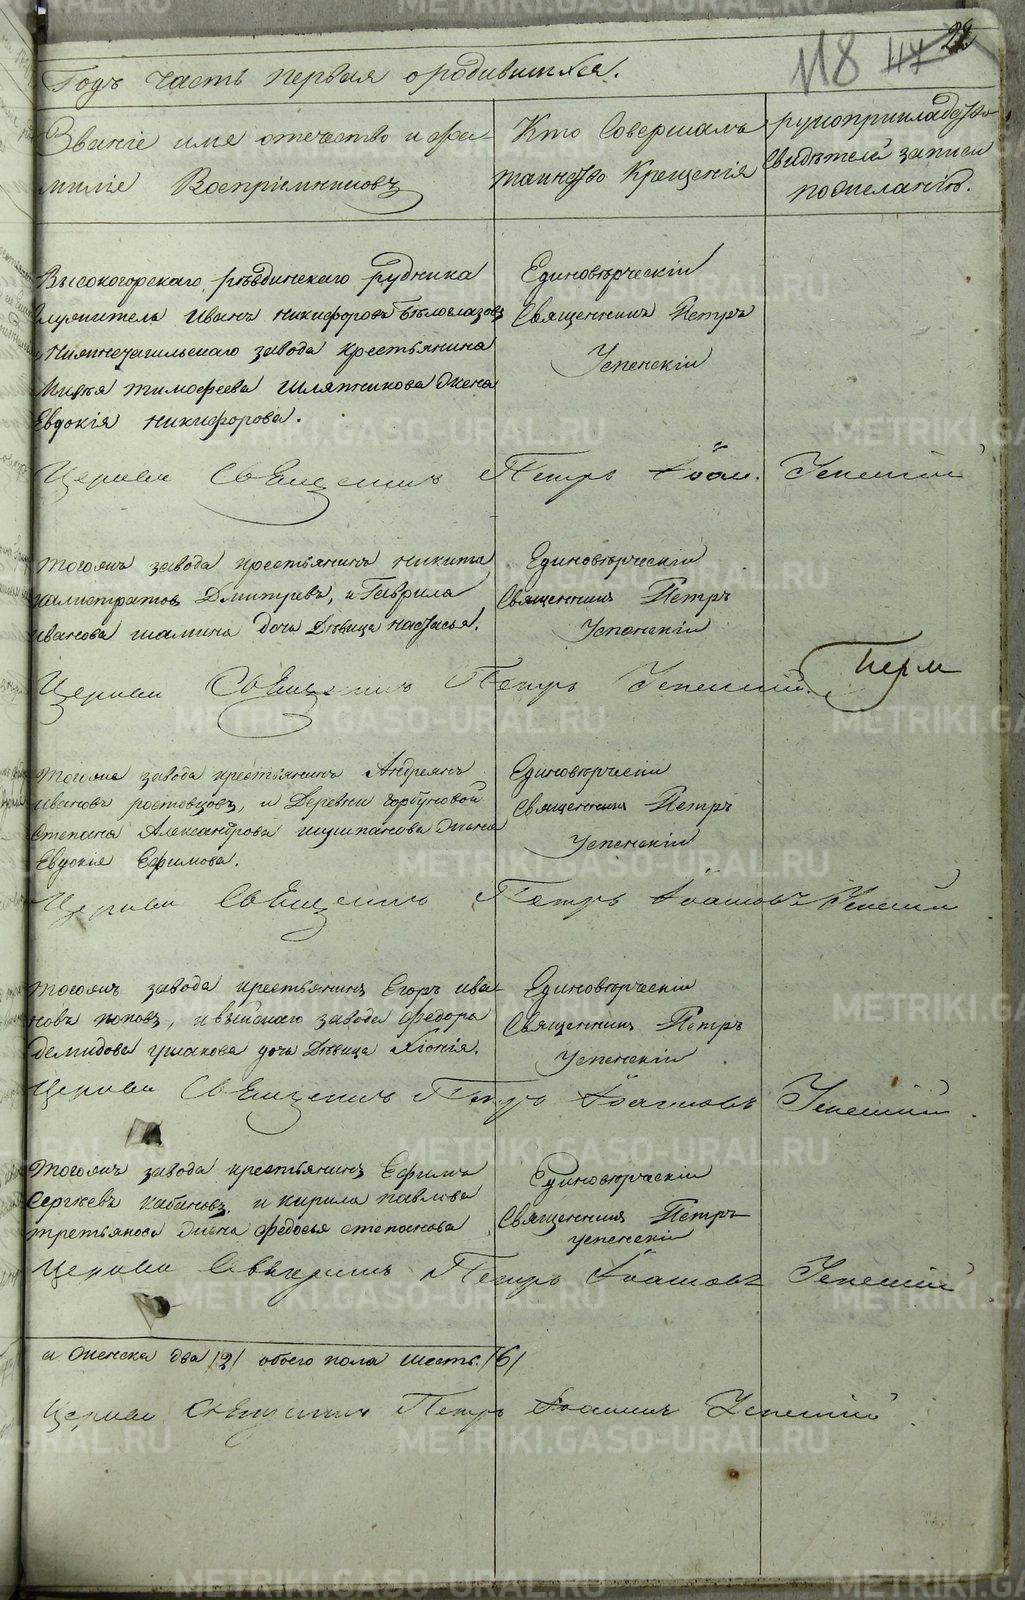 118 47 28
Годъ часть первая о родившихся.
Званіе имя отечество и фамиліе Воспріемниковъ
Кто Совершалъ таинство Крещенія
рукоприкладство свидѣтелей записи по желанію.
Высокогорскаго рудника
служитель Иванъ Никифоровъ Бѣлоглазовъ
и Нижнетагильскаго завода крестьянина
Тимофеева Шляпникова жена
Евдокія Никифорова.
Единовѣрческій
Священникъ Петръ
Успенскій
Церкви Священникъ Петръ Іоан. Успенскій
Тогожъ завода крестьянинъ Никита
Калистратовъ Дмитревъ, и Гаврила
Иванова шамина дочь Дѣвица настасья.
Единовѣрческій
Священникъ Петръ
Успенскій
Церкви Священникъ Петръ Успенскій.
Перм
Тогожа завода крестьянинъ Андреянъ
Ивановъ ростовцовъ, и Деревни горбуновой
Степана Александрова шушпанова жена
Евдокія Ефимова.
Единовѣрческій
Священникъ Петръ
Успенскій
Церкви Священникъ Петръ Іоанновъ Успенскій
Тогожъ завода крестьянинъ Егоръ Ива
новъ поповъ, и выйскаго завода Федора
Демидова ушакова дочь Дѣвица Хіонія.
Единовѣрческій
Священникъ Петръ
Успенскій
Церкви Священникъ Петръ Іоанновъ Успенскій.
Тогожъ завода крестьянинъ Ефимъ
Сергѣевъ кабановъ, и кирила павлова
третьякова жена федосья степанова
Единовѣрческій
Священникъ Петръ
Успенскій
Церкви Священникъ Петръ Іоанновъ Успенскій
а женска два /2/ обоего пола шесть. /6/
Церкви Священникъ Петръ Іоаннинъ Успенскій.
METRIKI.GASO-URAL.RU